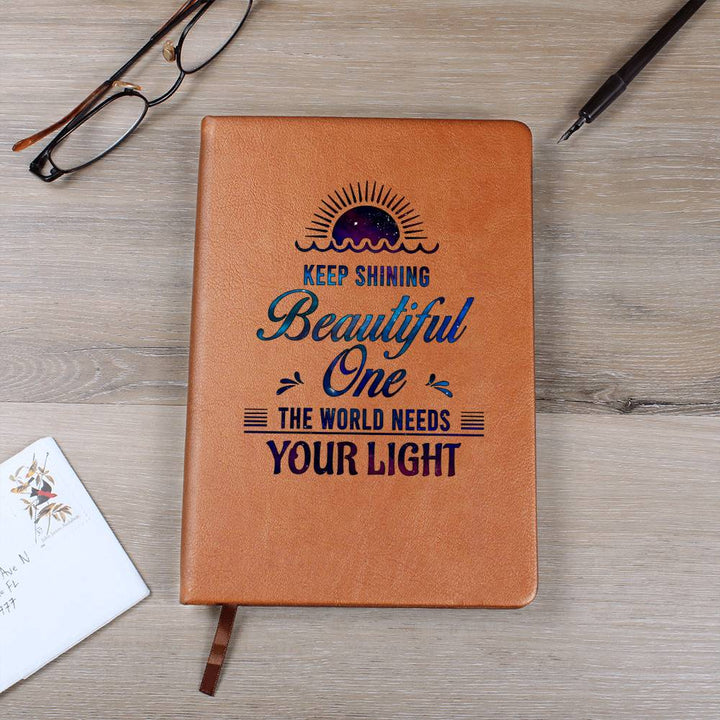 KEEP SHINING
Beautiful
One
THE WORLD NEEDS
YOUR LIGHT
Ave N
FL
977